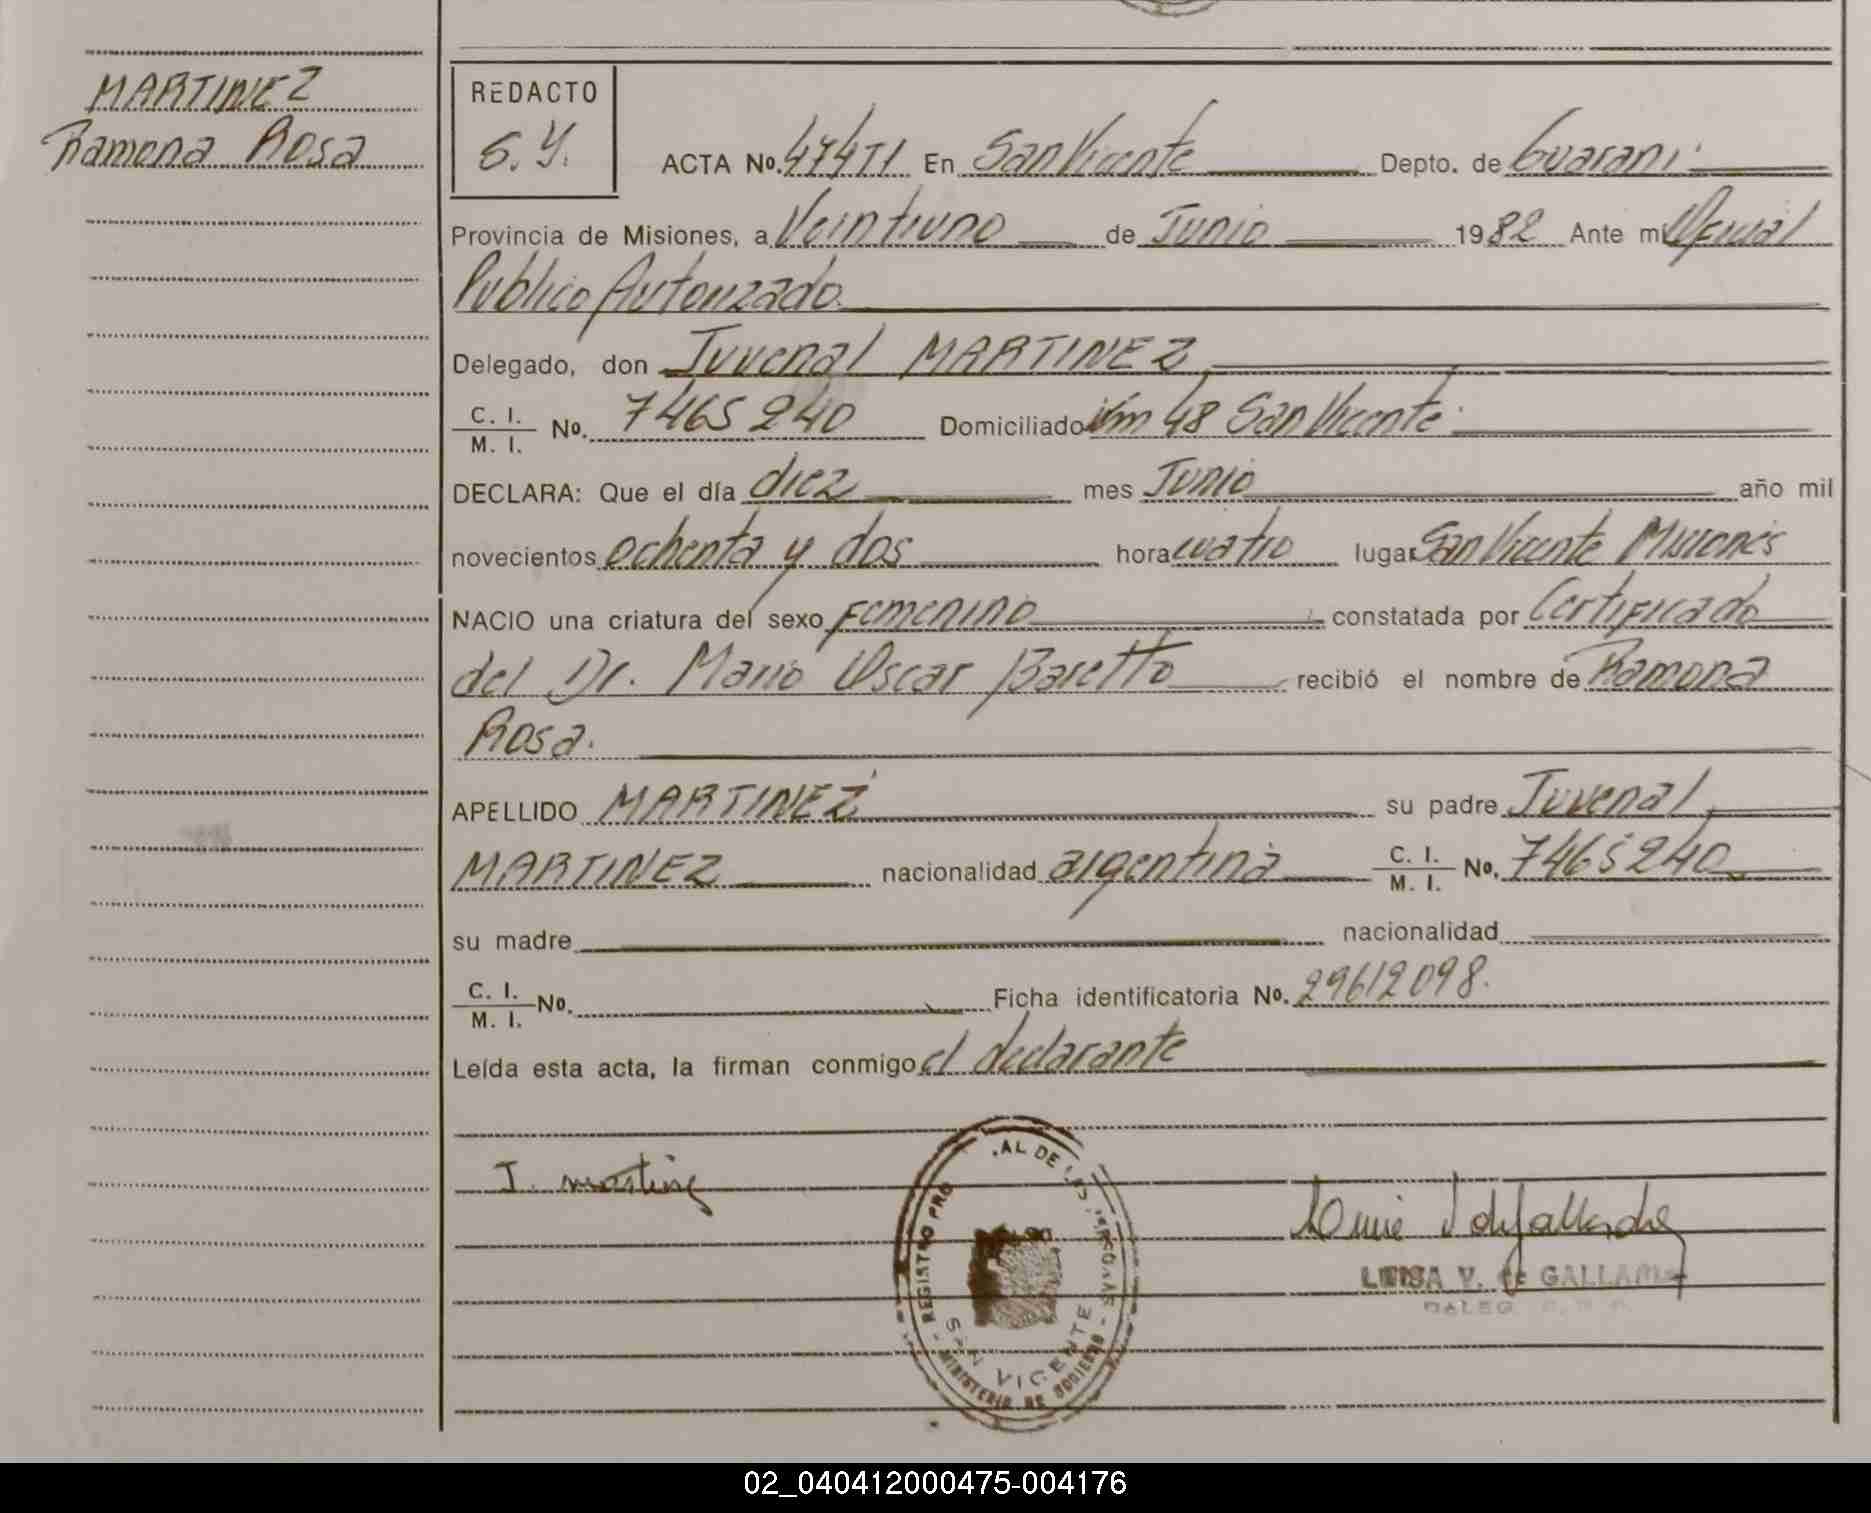 MARTINEZ
Ramona Rosa
REDACTO
G.Y.
ACTA No. 474TI En San Vicente Depto. de Guarani
Provincia de Misiones, a Veintiuno de Junio 1982 Ante mi Oficial
Publico Autorizado
Delegado, don Juvenal MARTINEZ
C. I. / M. I. No. 7465240 Domiciliado Km 48 San Vicente
DECLARA: Que el día diez mes Junio año mil
novecientos ochenta y dos hora cuatro lugar San Vicente Misiones
NACIO una criatura del sexo Femenino constatada por Certificado
del Dr. Mario Oscar Baretto recibió el nombre de Ramona
Rosa.
APELLIDO MARTINEZ su padre Juvenal
MARTINEZ nacionalidad argentina C. I. / M. I. No. 7465240
su madre nacionalidad
C. I. / M. I. No. Ficha identificatoria No. 29612098.
Leída esta acta, la firman conmigo el declarante
J. martinez
REGISTRO PRO AL DE LAS PERSONAS
SAN VICENTE
MINISTERIO DE GOBIERNO
LUISA V. de
02_040412000475-004176